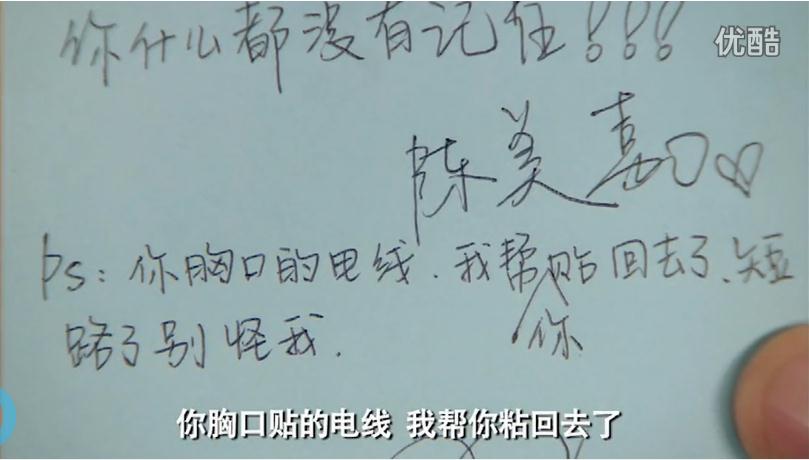 你什么都没有记住!!!
优酷
陈美嘉♡
Ps:你胸口的电线.我帮你贴回去了、短
路了别怪我.
你胸口贴的电线 我帮你粘回去了